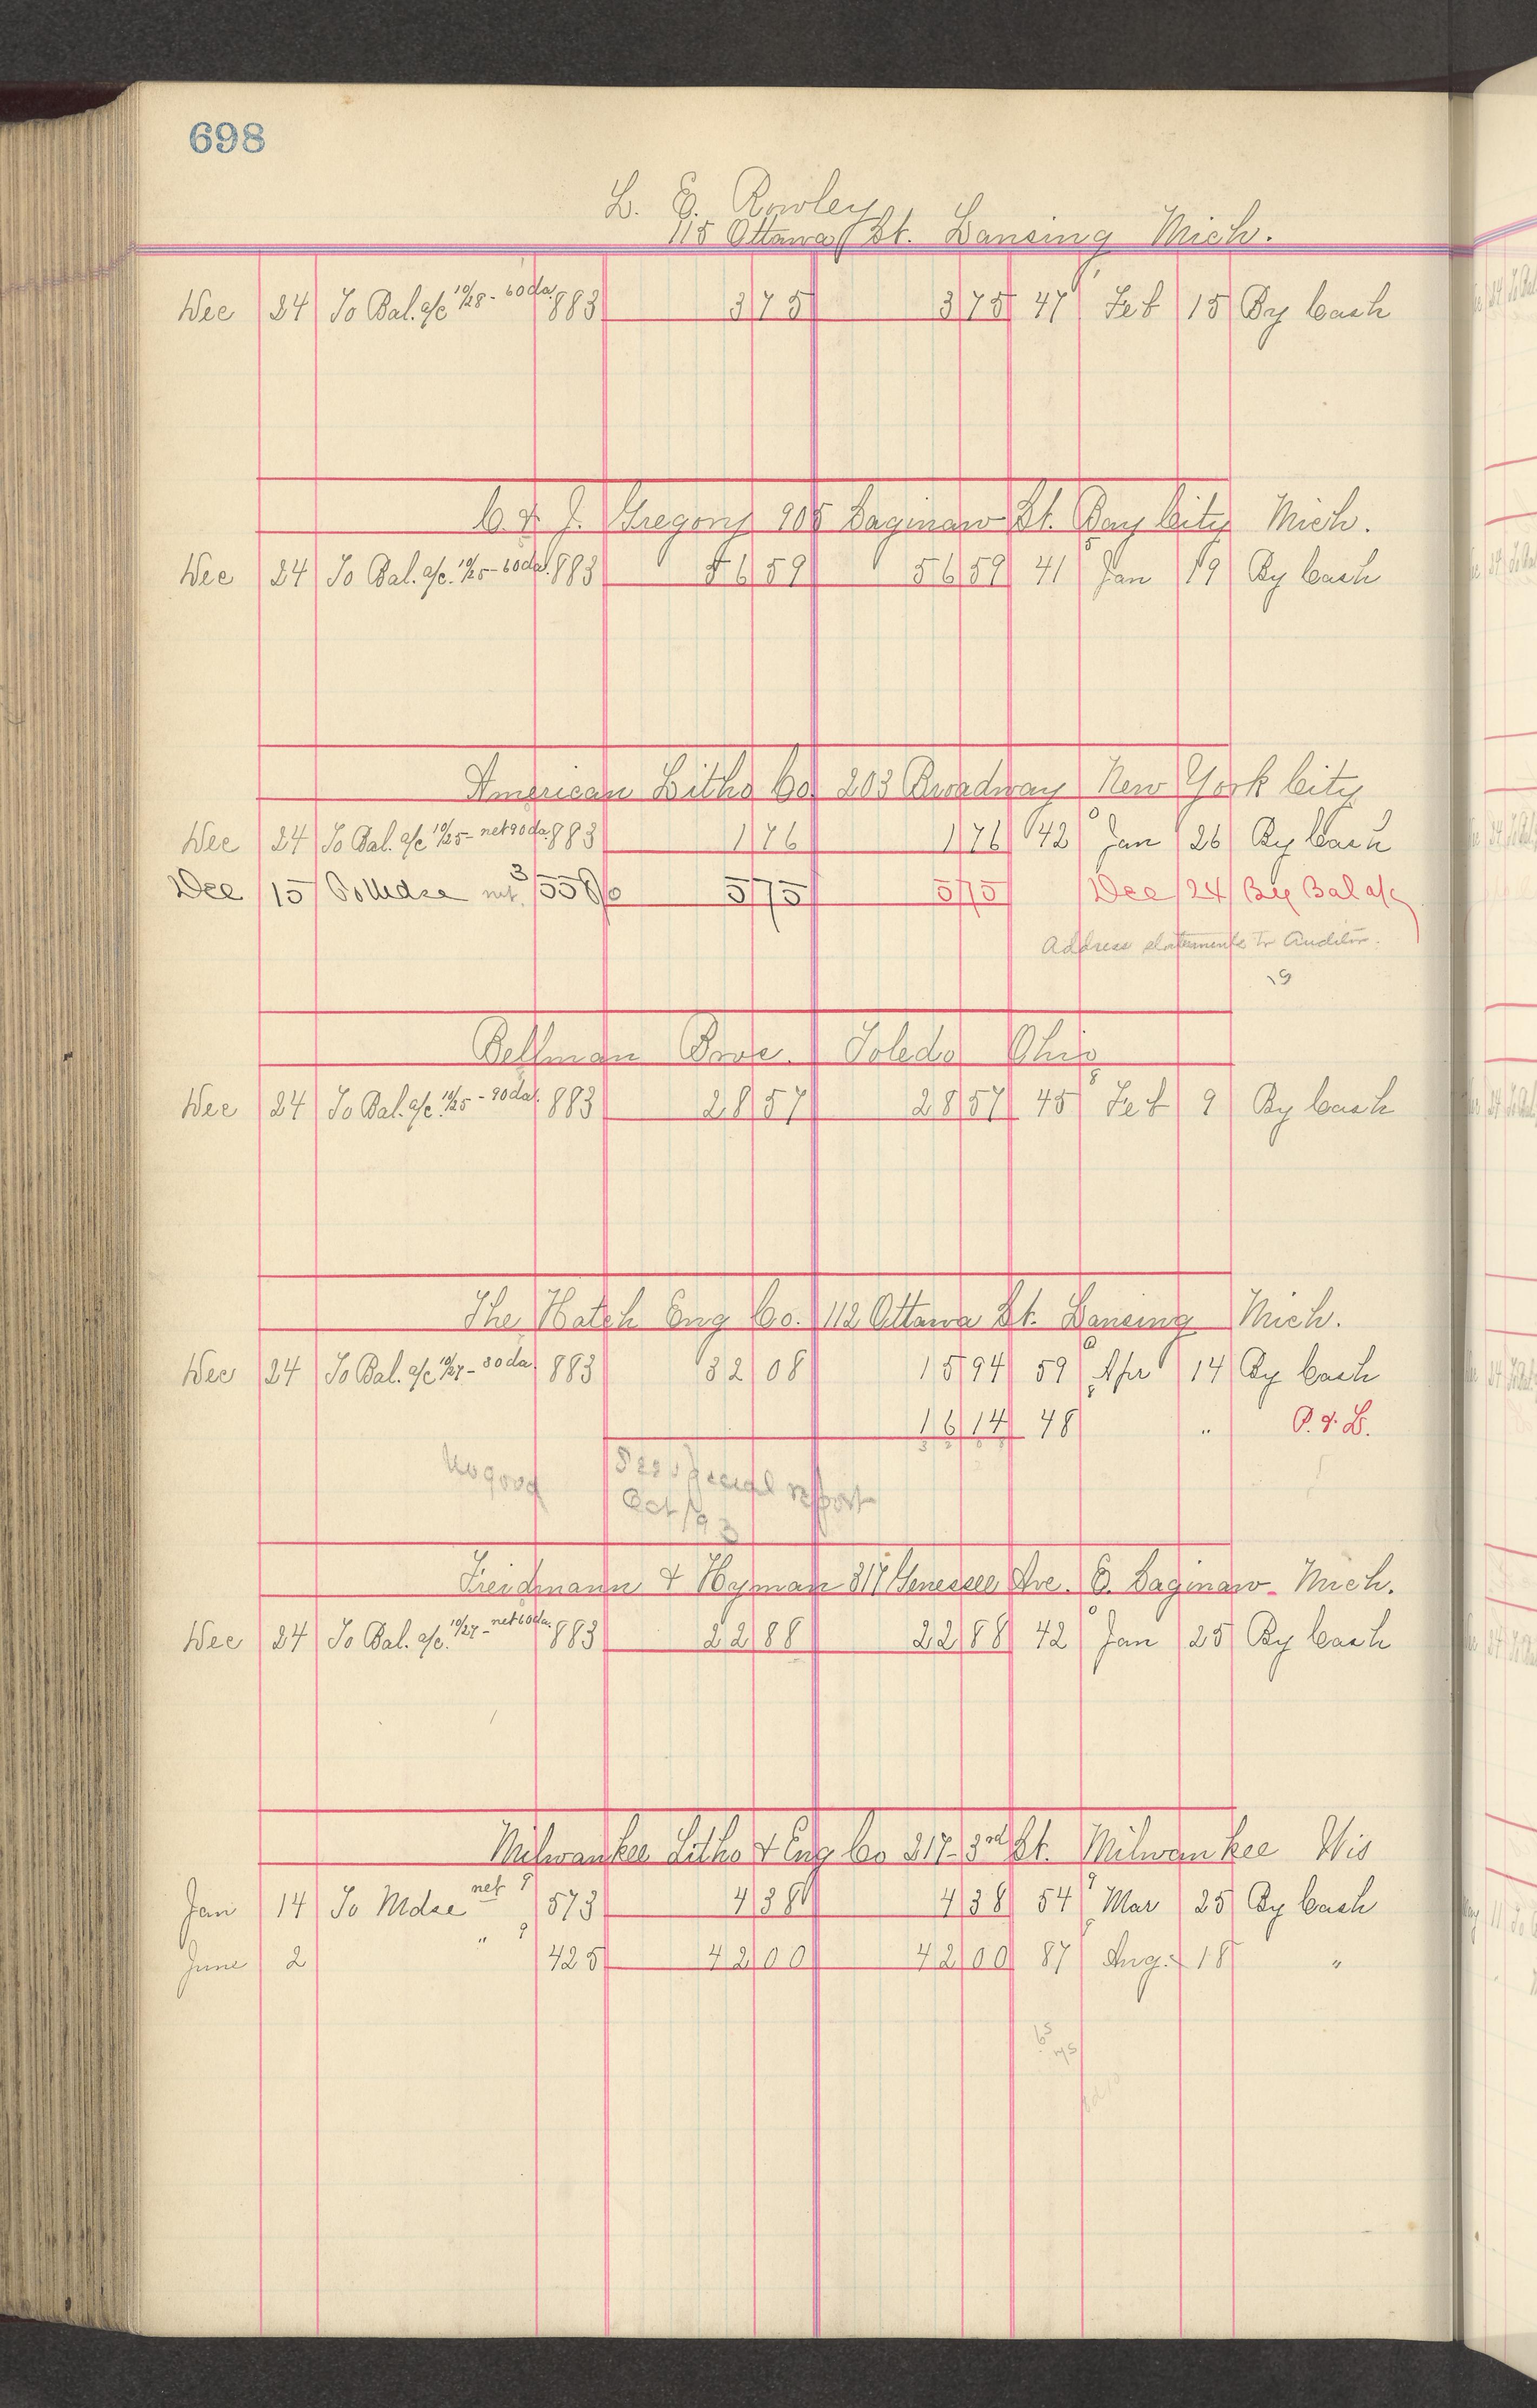 698
L. E. Rowley
115 Ottawa St. Lansing Mich.
Dec 24 To Bal. a/c 10/28 - 60 da. 883 3 75 3 75 47 Feb 15 By Cash
C. & J. Gregory 905 Saginaw St. Bay City Mich.
Dec 24 To Bal. a/c. 10/25 - 60 da. 883 56 59 56 59 41 Jan 19 By Cash
American Litho Co 203 Broadway New York City
Dec 24 To Bal. a/c 10/25 - net 90 da. 883 1 76 1 76 42 Jan 26 By Cash
Dec 15 To Mdse net 3 558 5 75 5 75 Dec 24 By Bal a/c
Address statements to Auditor.
19
Bellman Bros. Toledo Ohio
Dec 24 To Bal. a/c. 10/25 - 90 da. 883 28 57 28 57 45 Feb 9 By Cash
The Hatch Eng Co. 112 Ottawa St. Lansing Mich.
Dec 24 To Bal. a/c 10/27 - 30 da. 883 32 08 15 94 59 Apr 14 By Cash
16 14 48 " P. & L.
No good See special report
Oct /93
Freidmann & Hyman 317 Genessee Ave. E. Saginaw - Mich.
Dec 24 To Bal. a/c. 10/27 - net 60 da. 883 22 88 22 88 42 Jan 25 By Cash
Milwaukee Litho & Eng Co 217- 3rd St. Milwaukee Wis
Jan 14 To Mdse net 9 573 4 38 4 38 54 Mar 25 By Cash
June 2 " 9 425 42 00 42 00 87 Aug. 18 "